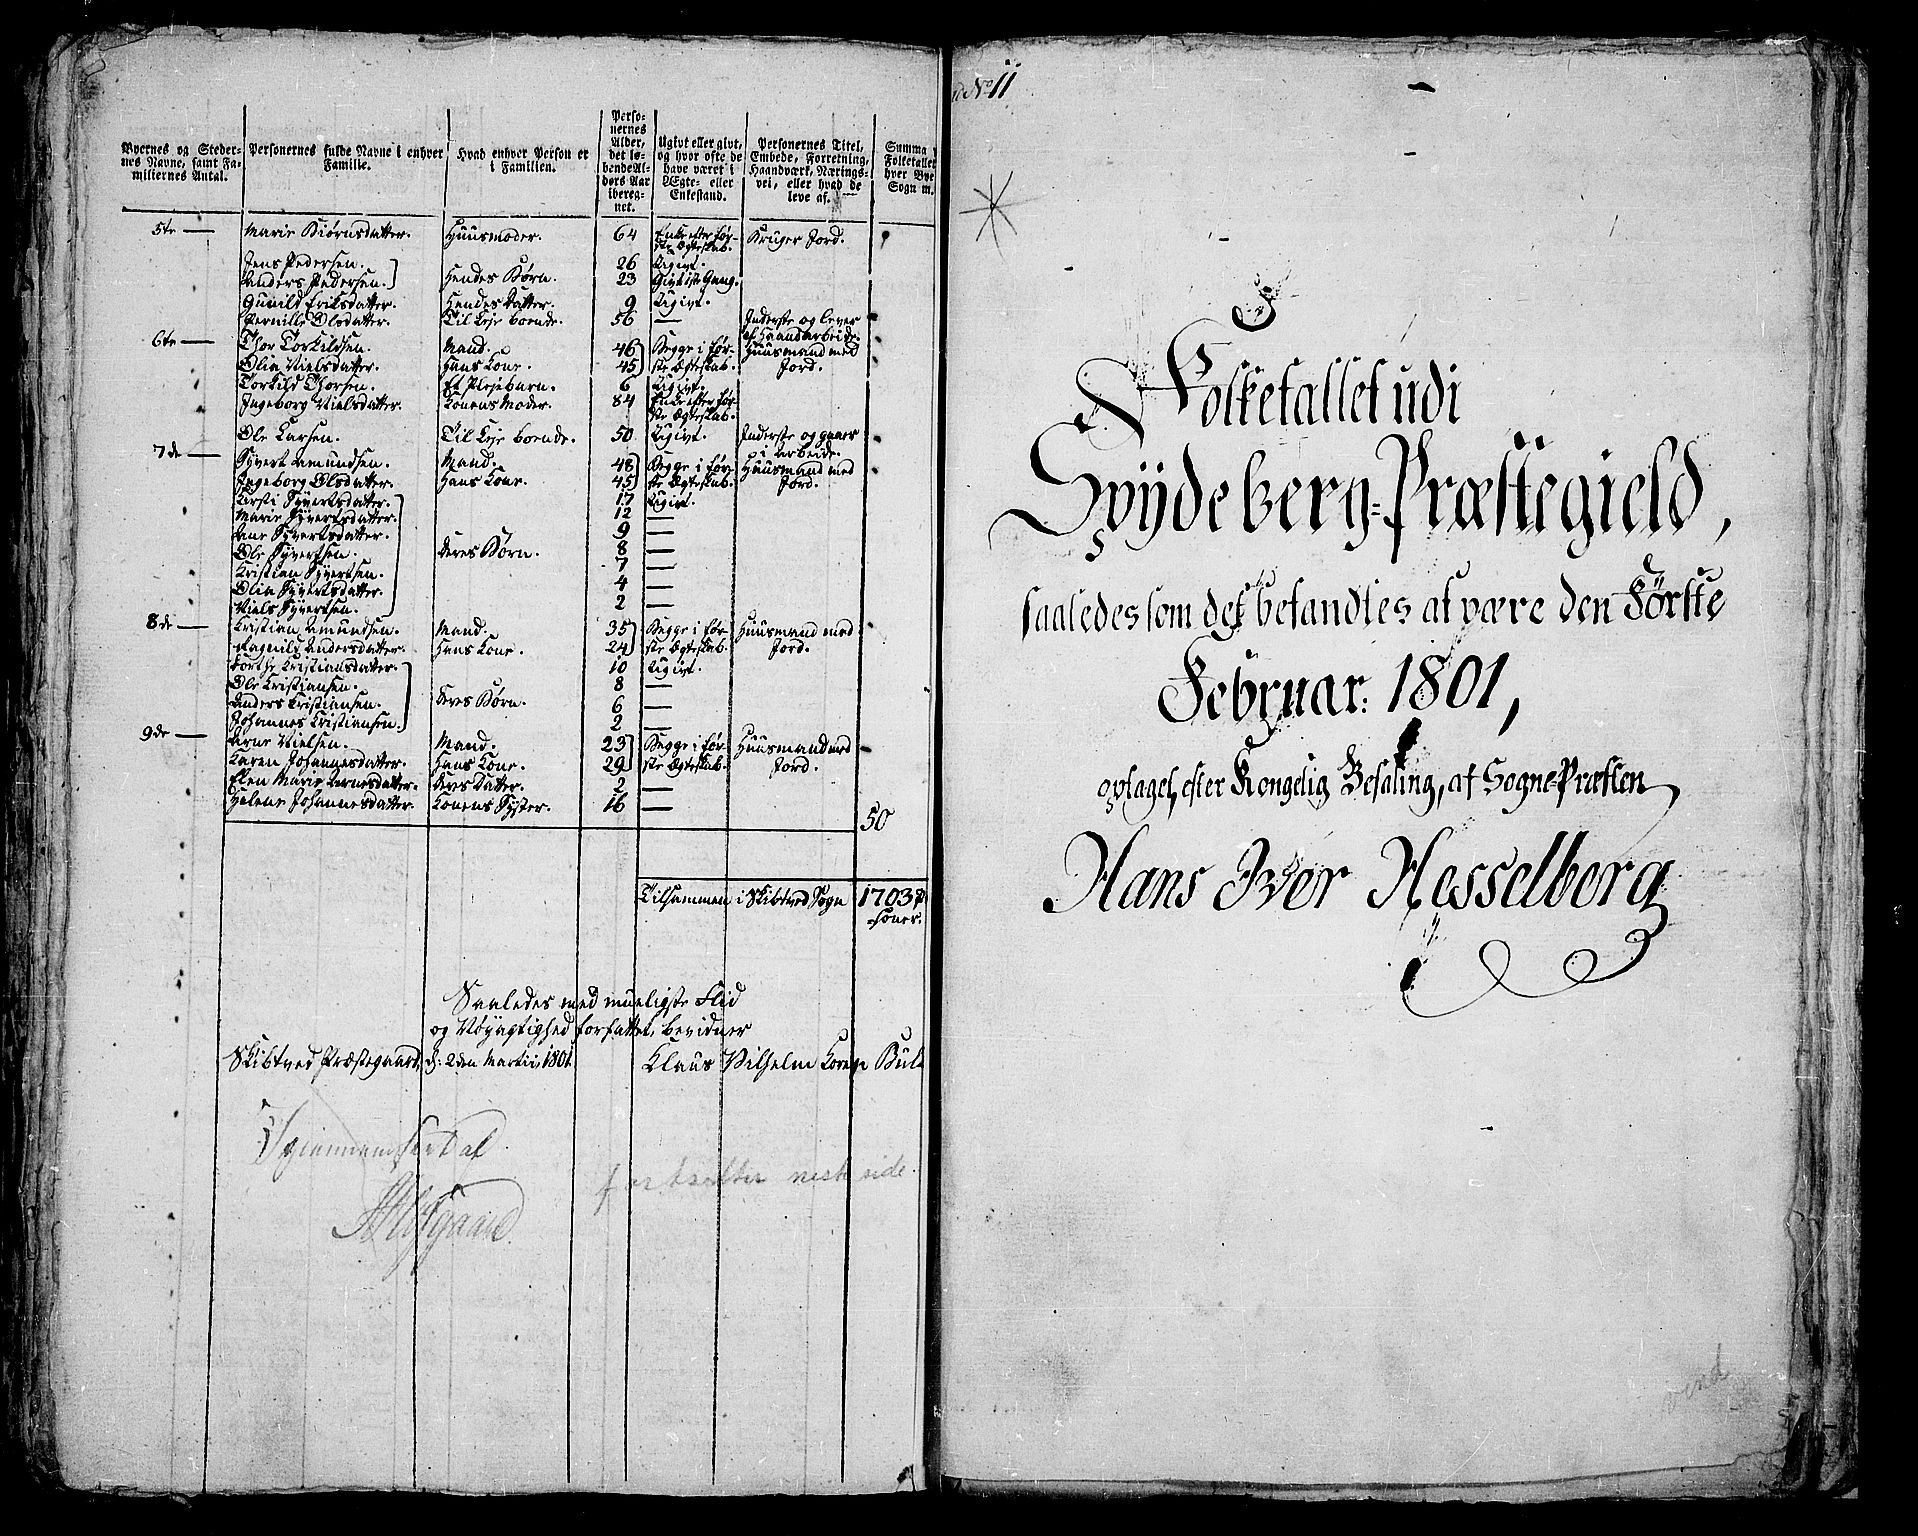 Byernes og Steder-
nes Navne, samt Fa-
miliernes Antal.
Personernes fulde Navne i enhver
Familie.
Hvad enhver Person er
i Familien.
Perso-
nernes
Alder,
det lø-
bende Al-
ders Aar
ibereg-
net.
Ugivt eller givt,
og hvor ofte de
have været i
Ægte- eller
Enkestand.
Personernes Titel,
Embede, Forretning,
Haandværk, Nærings-
vei, eller hvad de
leve af.
Summa
Folketallet
hver Bye
Sogn m.
5te — Marie Biørnsdatter. Huusmoder. 64 Enke efter før- Bruger Jord.
ste Ægteskab.
Jens Pedersen. 26 Ugivt.
Anders Pedersen. Hendes Børn. 23 Givt 1ste Gang.
Gunild Eriksdatter. Hendes Datter. 9 Ugivt.
Pernille Olsdatter. Til Leje boende. 56 — Inderste og lever
af Haandarbeide.
6te — Thor Torkildsen. Mand. 46 Begge i før- Huusmand med
Olia Nielsdatter. Hans Kone. 45 ste Ægteskab. Jord.
Torkild Thorsen. Et Plejebarn. 6 Ugivt.
Ingeborg Nielsdatter. Konens Moder. 84 Enke efter før-
ste Ægteskab.
Ole Larsen. Til Leje boende. 50 Ugivt. Inderste og gaaer
i Arbeide.
7de — Syvert Amundsen. Mand. 48 Begge i før- Huusmand med
Ingeborg Olsdatter. Hans Kone. 45 ste Ægteskab. Jord.
Kirsti Syvertsdatter. 17 Ugivt.
Marie Syvertsdatter. 12 —
Ane Syvertsdatter. 9 —
Ole Syvertsen. Deres Børn. 8 —
Kristian Syvertsen. 7 —
Olia Syvertsdatter. 4 —
Niels Syvertsen. 2 —
8de — Kristian Amundsen. Mand. 35 Begge i før- Huusmand med
Magnild Andersdatter. Hans Kone. 24 ste Ægteskab. Jord.
Dorthe Kristiansdatter. 10 Ugivt.
Ole Kristiansen. 8 —
Anders Kristiansen. Deres Børn. 6 —
Johannes Kristiansen. 2 —
9de — Arne Nielsen. Mand. 23 Begge i før- Huusmand med
Karen Johannesdatter. Hans Kone. 29 ste Ægteskab. Jord.
Elen Marie Arnesdatter. Deres Datter. 2 —
Helene Johannesdatter. Konens Syster. 16 —
50
Tilsammen i Skibtved Sogn 1703 P
soner.
Saaledes med mueligste Flid
og Nøyagtighed forfattet, bevidner
Skibtved Præstegaard, d: 2den Martii, 1801 Klaus Vilhelm Bull
Igiennemseet af
fortsetter neste side.
No 11
Folketallet udi
Spydeberg-Præstegield,
saaledes som det befandtes at være den Første
Februar: 1801,
optaget, efter Kongelig Befaling, af Sogne-Præsten
Hans Iver Hesselberg
vend